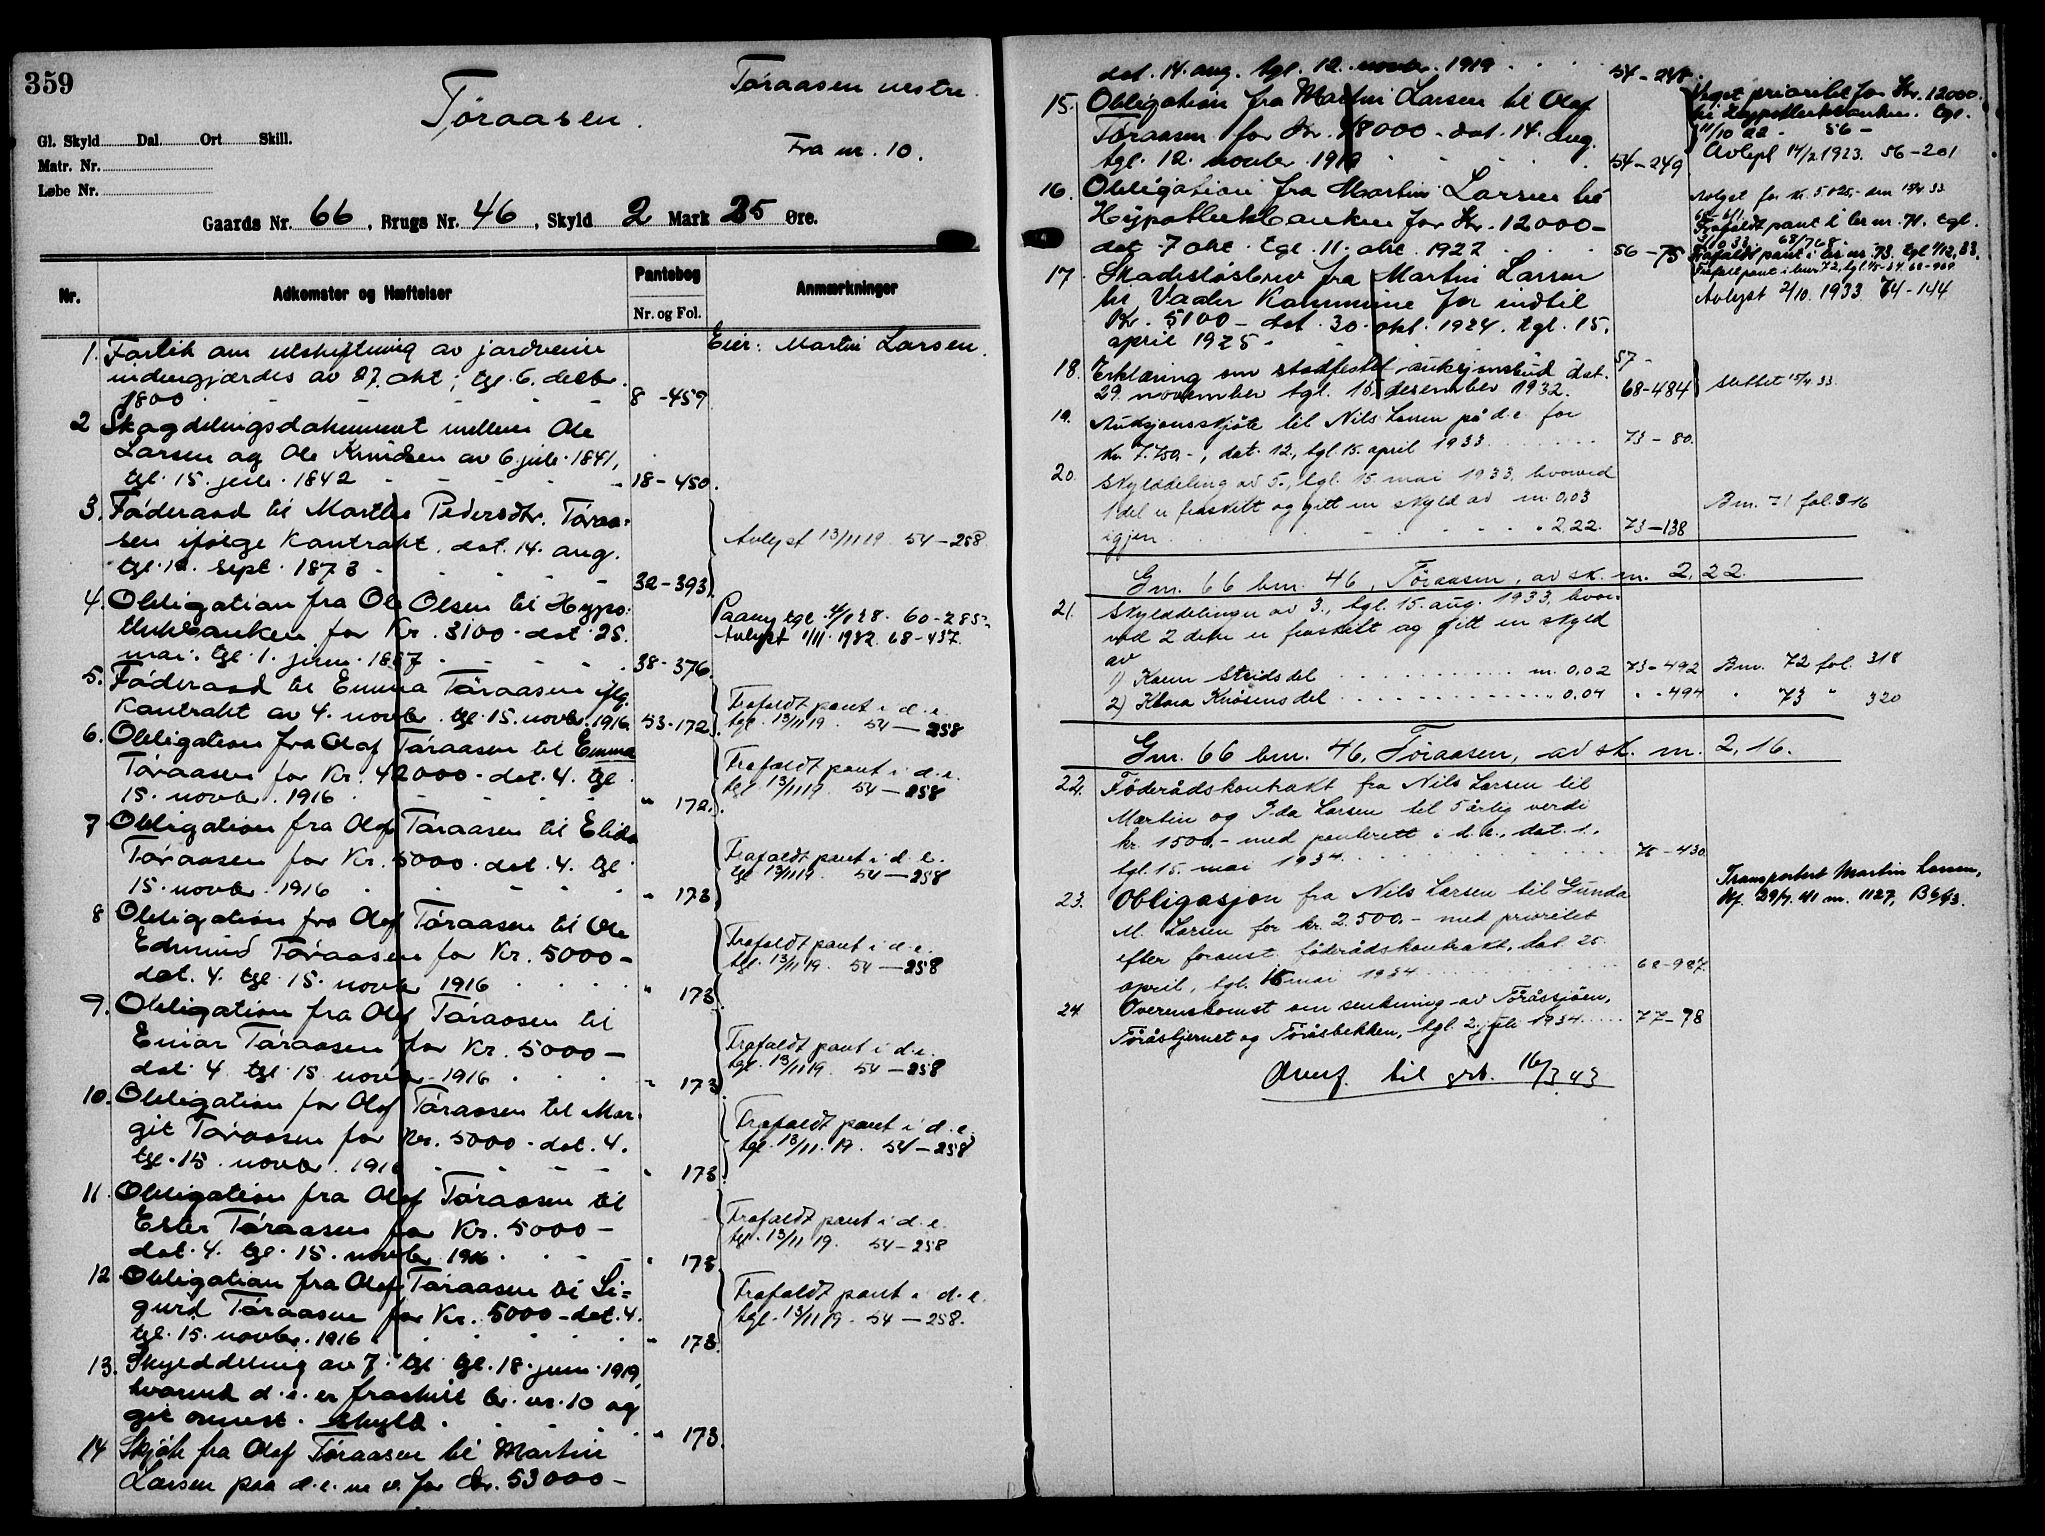 359
Tøraasen vestre.
Tøraasen.
Fra nr. 10.
Gl. Skyld Dal. Ort Skill.
Matr. Nr.
Løbe Nr.
Gaards Nr. 66, Brugs Nr. 46, Skyld 2 Mark 25 Øre.
Nr. Adkomster og Hæftelser Pantebog Nr. og Fol. Anmærkninger
Eier: Martin Larsen.
1. Forlik om utskiftning av jordveiene
indengjærdes av 27. okt; tgl. 6. decbr.
1800 8-459
2 Skogdelingsdokument mellem Ole
Larsen og Ole Knudsen av 6 juli 1841,
tgl. 15. juli 1842 18-450.
3. Føderaad til Marthe Pedersdtr. Tøraa-
sen ifølge kontrakt dat. 14. aug.
tgl. 12. sept. 1873 32-393 Avlyst 13/11 19. 54-258.
4. Obligation fra Ole Olsen til Hypo-
thekbanken for Kr. 3100 - dat. 25.
mai, tgl. 1. juni 1887 38-376. Paany tgl. 4/1 28. 60-285.
Avlyst 1/11. 1932. 68-437.
5. Føderaad til Emma Tøraasen iflg.
kontrakt av 4. novbr. tgl. 15. novbr. 1916. 53-172. Frafaldt pant i d.e.
tgl. 13/11 19. 54-258
6. Obligation fra Olaf Tøraasen til Emma
Tøraasen for Kr. 42000 - dat. 4. tgl.
15. novbr. 1916 " 172. Frafaldt pant i d.e.
tgl. 13/11 19. 54-258
7 Obligation fra Olaf Tøraasen til Elida
Tøraasen for Kr. 5000 - dat. 4. tgl.
15. novbr. 1916 " 173 Frafaldt pant i d.e.
tgl. 13/11 19. 54-258
8 Obligation fra Olaf Tøraasen til Ole
Edmund Tøraasen for Kr. 5000 -
dat. 4. tgl. 15. novbr 1916 " 173 Frafaldt pant i d.e.
tgl. 13/11 19. 54-258
9. Obligation fra Olaf Tøraasen til
Einar Tøraasen for Kr. 5000 -
dat. 4 tgl. 15. novbr. 1916 " 173 Frafaldt pant i d.e.
tgl. 13/11 19. 54-258
10. Obligation for Olaf Tøraasen til Mar-
git Tøraasen for Kr. 5000 - dat. 4.
tgl. 15. novbr. 1916 " 173 Frafaldt pant i d.e.
tgl. 13/11. 19. 54-258
11. Obligation fra Olaf Tøraasen til
Ester Tøraasen for Kr. 5000 -
dat. 4. tgl. 15. novbr. 1916 " 173 Frafaldt pant i d.e.
tgl. 13/11 19. 54-258
12 Obligation fra Olaf Tøraasen til Si-
gurd Tøraasen for Kr. 5000 - dat. 4.
tgl. 15. novbr. 1916 " 173. Frafaldt pant i d.e.
tgl. 13/11 19. 54-258.
13. Skylddeling av 7. tgl. 18. juni 1919,
hvorved d.e. er fraskilt br. nr. 10 og
git ovennt. skyld. " 173.
14 Skjøte fra Olaf Tøraasen til Martin
Larsen paa d.e. m.v. for Kr. 53000 -
dat. 14. aug. tgl. 12. novbr. 1919 54-248.
15. Obligation fra Martin Larsen til Olaf
Tøraasen for Kr. 18000 - dat. 14. aug.
tgl. 12. novbr. 1919 54-249
Veget prioritet for Kr. 12000.
til Hypothekbanken. tgl.
11/10 22 - 56 -
Avlyst 14/2 1923. 56-201
16. Obligation fra Martin Larsen til
Hypothekbanken for Kr. 12000 -
dat. 7 okt. tgl. 11. okt. 1922 56-75
Avlyst for kr. 5025,- den 15/4 33
Frafaldt pant i br nr. 71. tgl.
Frafaldt pant i br. nr. 73. tgl. 1/12. 33.
Frafalt pant i br nr 72, tgl.
17. Skadesløsbrev fra Martin Larsen
til Vaaler Kommune for indtil
Kr. 5100 - dat. 30. okt. 1924. tgl. 15.
april 1925 - 57 - Avlyst 2/10. 1933. 74-144
18. Erklæring om stadfestet auksjonsbud dat.
29. november tgl. 15. desember 1932. 68-484 Slettet 15/4 33.
19. Auksjonsskjøte til Nils Larsen på d.e. for
kr. 7.750,-, dat. 12., tgl. 15. april 1933 73-80.
20. Skylddeling av 5., tgl. 15 mai 1933, hvorved
1 del er fraskilt og gitt en skyld av m. 0,03 Bnr. 71 fol. 316
igjen " 2,22. 73-138
Gnr. 66 bnr. 46, Tøraasen, av sk. m. 2,22.
21. Skylddelinger av 3., tgl. 15. aug. 1933, hvor-
ved 2 deler er fraskilt og gitt en skyld
av
1) Karen Strids del m. 0,02 73-492 Bnr. 72 fol. 318
2) Klara Knøsens del " 0,04 " -494 " 73 " 320
Gnr. 66 bnr. 46, Tøraasen, av sk. m. 2,16.
22. Føderådskontrakt fra Nils Larsen til
Martin og Ida Larsen til 5 årlig verdi
kr. 1500,- med panterett i d.e., dat. 1.,
tgl. 15. mai 1934 75-430
23. Obligasjon fra Nils Larsen til Gunda
M. Larsen for kr. 2.500,- med prioritet
efter forannt. føderådskontrakt, dat. 25.
april, tgl. 15 mai 1934 68-987.
Transportert Martin Larsen,
tgl. 29/7. 41 nr. 1127, B 6/43.
24. Overenskomst om senkning av Tøråssjøen,
Tøråstjernet og Tøråsbekken, tgl. 2. juli 1934 77-78
Overf. til grb. 16/3 43